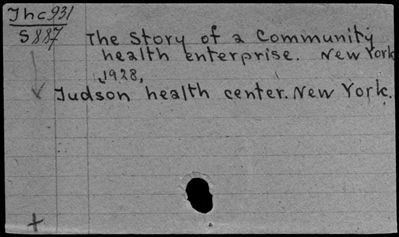 Thc931
S887
The Story of a Community
health enterprise. New York
1928.
Judson health center. New York.